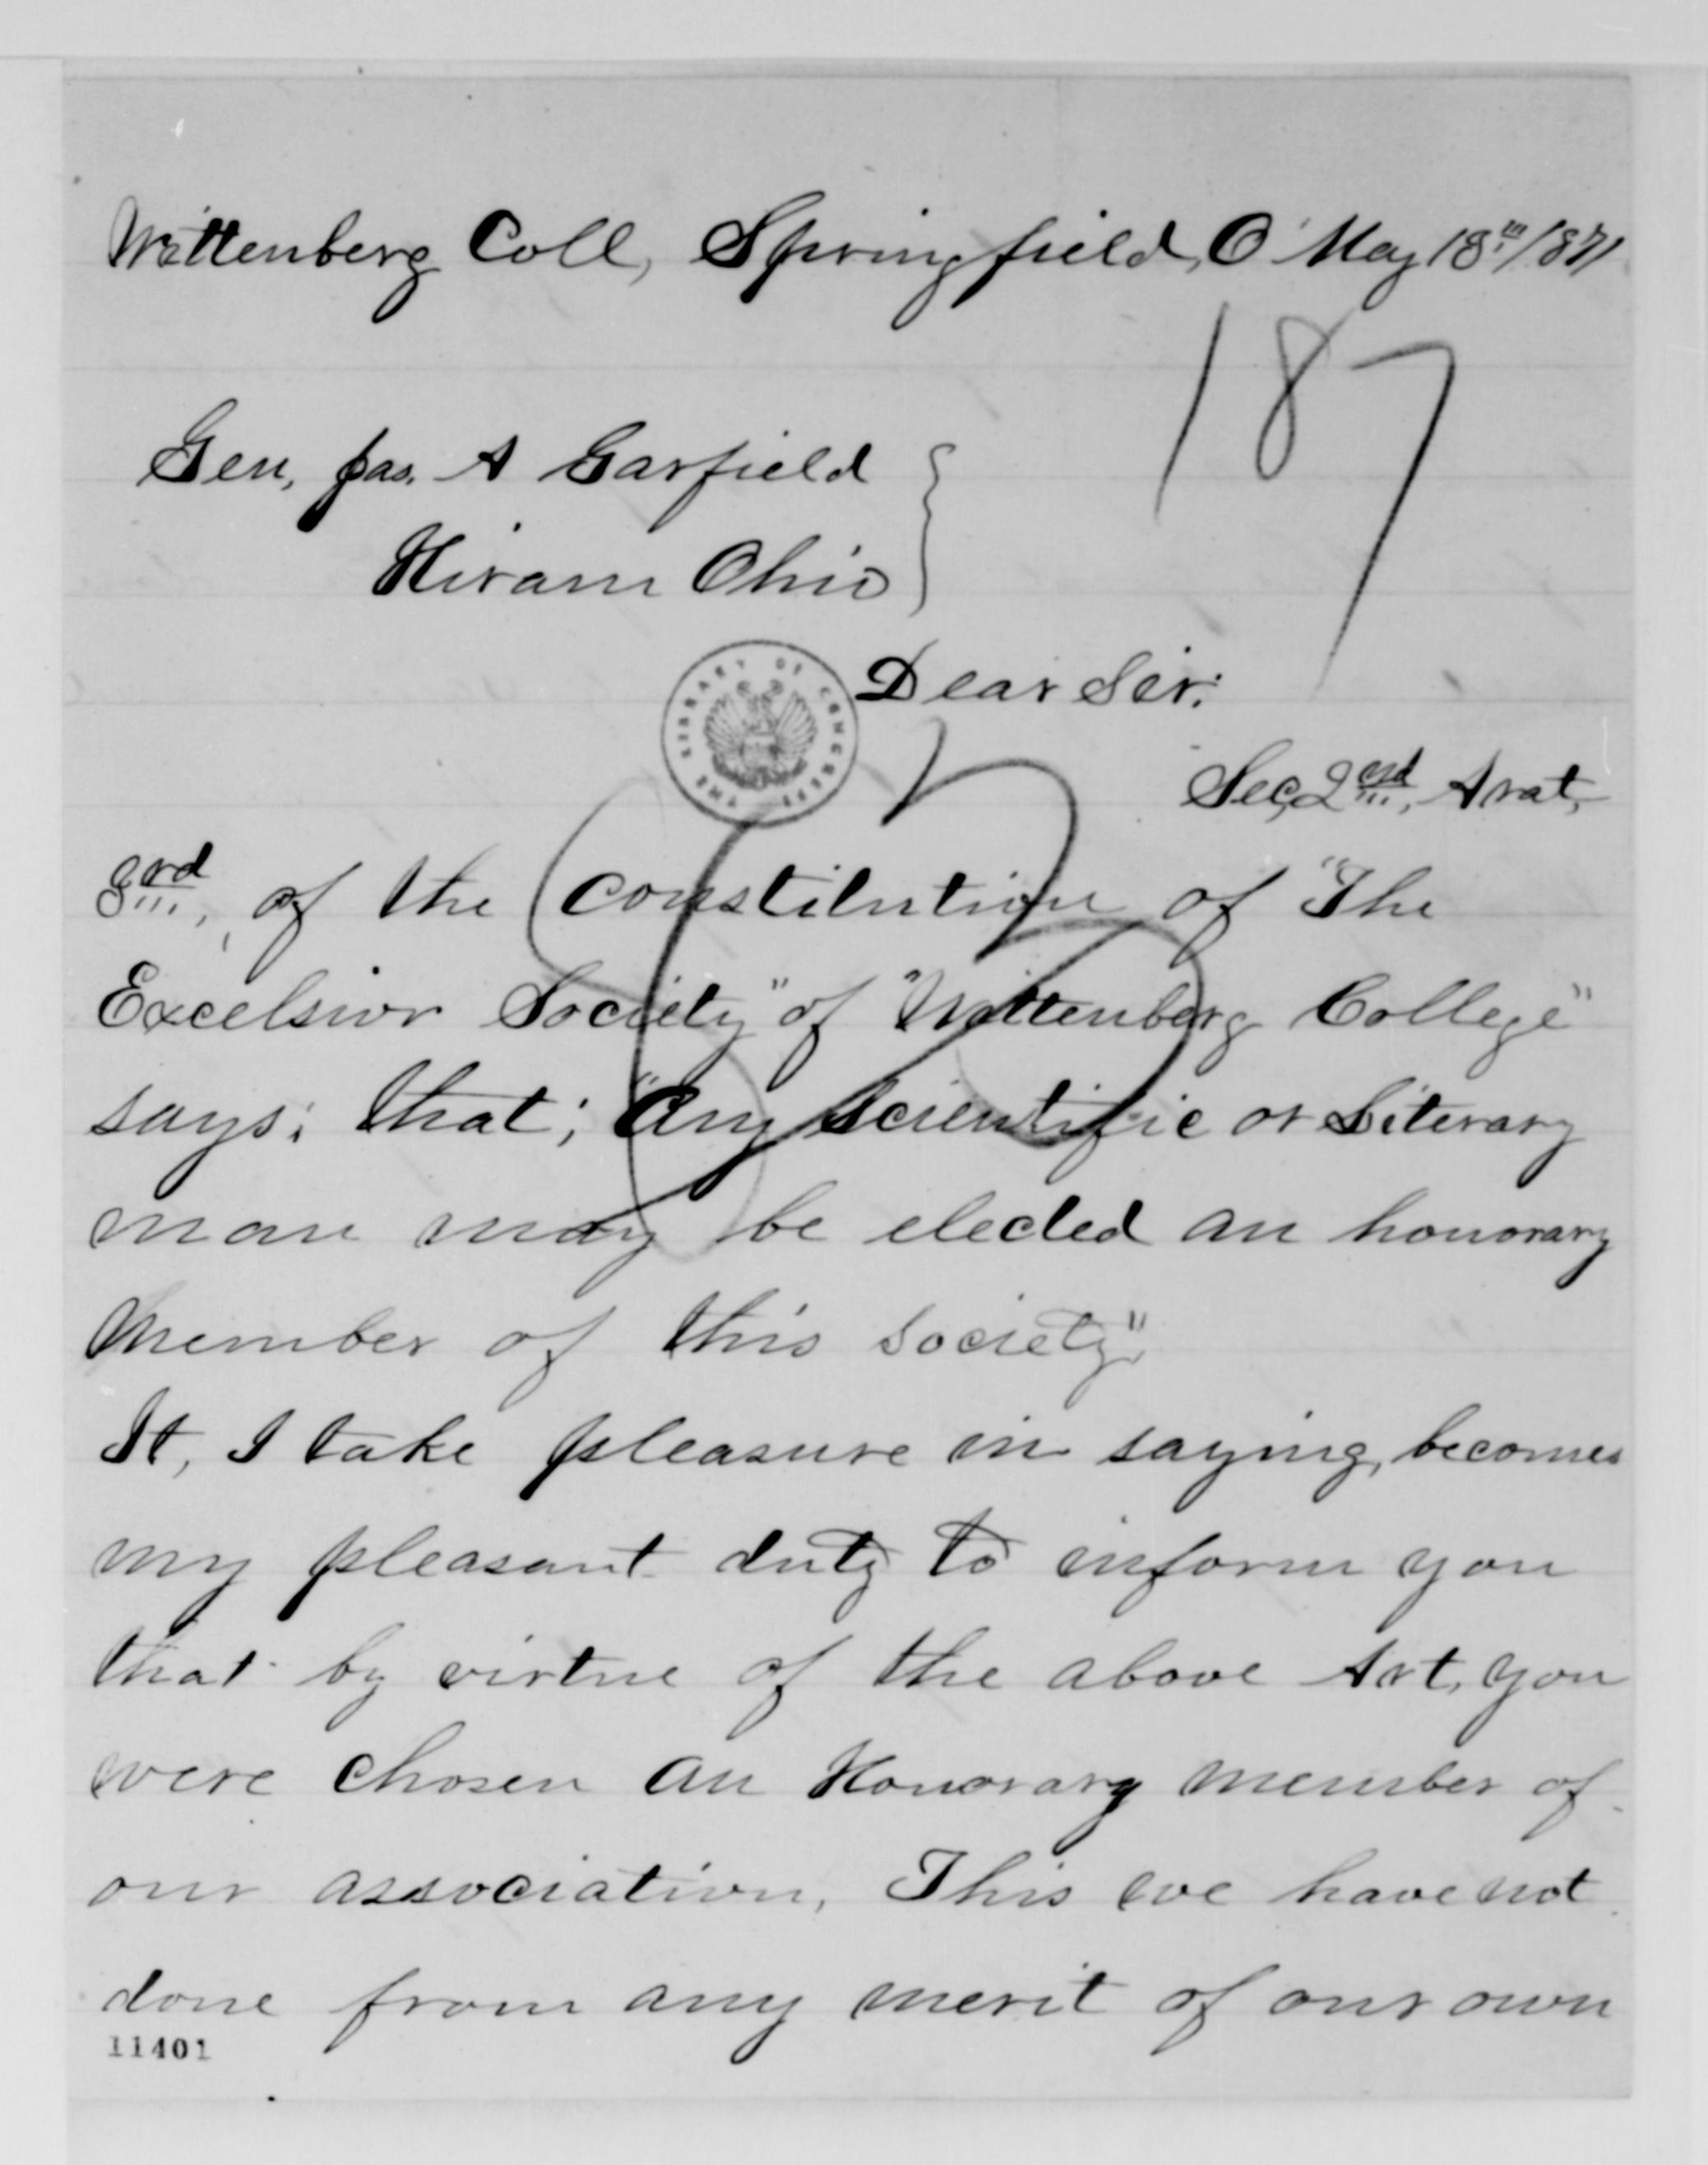 Wittenberg Coll, Springfield, O May 18th/871
187
Gen, Jas. A Garfield
Hiram Ohio
THE LIBRARY OF CONGRESS
Dear Sir:
Sec, 2nd, Arat,
3rd, of the constitution of "The
Excelsior Society" of "Wittenberg College"
says: that; "Any scientific or Literary
man may be elected an honorary
member of this society".
It, I take pleasure in saying, becomes
my pleasant duty to inform you
that by virtue of the above Art, you
were chosen an Honorary member of
our association, This we have not
done from any merit of our own
11401